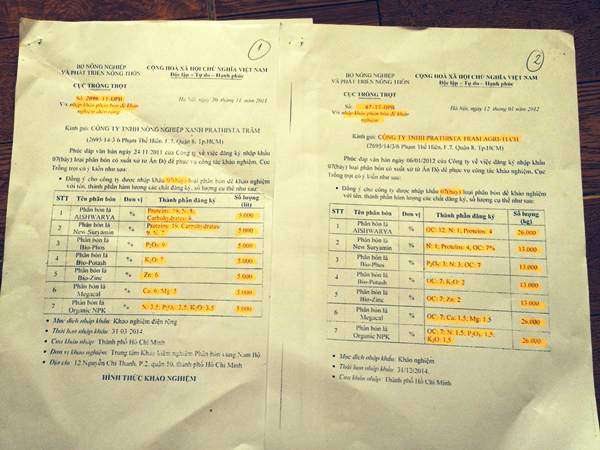 1
BỘ NÔNG NGHIỆP
VÀ PHÁT TRIỂN NÔNG THÔN
CỤC TRỒNG TRỌT
CỘNG HOÀ XÃ HỘI CHỦ NGHĨA VIỆT NAM
Độc lập – Tự do – Hạnh phúc
V/v nhập khẩu phân bón để khảo
nghiệm diện rộng
Hà Nội, ngày 30 tháng 11 năm 2011
Kính gửi: CÔNG TY TNHH NÔNG NGHIỆP XANH PRATHISTA TRÂM
(2695/14/3/6 Phạm Thế Hiển, F.7, Quận 8, Tp.HCM)
Phúc đáp văn bản ngày 24/11/2011 của Công ty về việc đăng ký nhập khẩu
07(bảy) loại phân bón có xuất xứ từ Ấn Độ để phục vụ công tác khảo nghiệm, Cục
Trồng trọt có ý kiến như sau:
• Đồng ý cho công ty được nhập khẩu 07(bảy) loại phân bón để khảo nghiệm
với tên, thành phần hàm lượng các chất đăng ký, số lượng cụ thể như sau:
STT Tên phân bón Đơn vị Thành phần đăng ký Số lượng (lít)
1 Phân bón lá AISHWARYA % Proteins: 19; N: 5; Carbohydrates: 8 5.000
2 Phân bón lá New Suryamin % Proteins: 19; Carbohydrates: 5.000
3 Phân bón lá Bio-Phos % P₂O₅: 9 5.000
4 Phân bón lá Bio-Potash % K₂O: 7 5.000
5 Phân bón lá Bio-Zinc % Zn: 6 5.000
6 Phân bón lá Megacal % Ca: 6; Mg: 5 5.000
7 Phân bón lá Organic NPK % 2,5; P₂O₅: 2,5; K₂O: 2,5 5.000
• Mục đích nhập khẩu: Khảo nghiệm diện rộng
• Thời hạn nhập khẩu: 31/03/2014.
• Cửa khẩu nhập: Thành phố Hồ Chí Minh
• Đơn vị khảo nghiệm: Trung tâm Khảo kiểm nghiệm Phân bón vùng Nam Bộ.
• Địa chỉ: 12 Nguyễn Chí Thanh, P.2, quận 10, thành phố Hồ Chí Minh
HÌNH THỨC KHẢO NGHIỆM
2
BỘ NÔNG NGHIỆP
VÀ PHÁT TRIỂN NÔNG THÔN
CỤC TRỒNG TRỌT
CỘNG HOÀ XÃ HỘI CHỦ NGHĨA VIỆT NAM
Độc lập – Tự do – Hạnh phúc
Số: 67/TT-ĐPB
V/v nhập khẩu phân bón để khảo
nghiệm
Hà Nội, ngày 12 tháng 01 năm 2012
Kính gửi: CÔNG TY TNHH PRATHISTA TRAM AGRI-TECH
(2695/14/3/6 Phạm Thế Hiển, F.7, Quận 8, Tp.HCM)
Phúc đáp văn bản ngày 06/01/2012 của Công ty về việc đăng ký nhập khẩu
07(bảy) loại phân bón có xuất xứ từ Ấn Độ để phục vụ công tác khảo nghiệm, Cục
Trồng trọt có ý kiến như sau:
• Đồng ý cho công ty được nhập khẩu 07(bảy) loại phân bón để khảo nghiệm
với tên, thành phần hàm lượng các chất đăng ký, số lượng cụ thể như sau:
STT Tên phân bón Đơn vị Thành phần đăng ký Số lượng (kg)
1 Phân bón lá AISHWARYA % OC: 12; N: 1; Proteins: 4 26.000
2 Phân bón lá New Suryamin % N: 1; Proteins: 4; OC: 7% 13.000
3 Phân bón lá Bio-Phos % P₂O₅: 3; N: 3; OC: 7 13.000
4 Phân bón lá Bio-Potash % OC: 7; K₂O: 2 13.000
5 Phân bón lá Bio-Zinc % OC: 7; Zn: 2 13.000
6 Phân bón lá Megacal % OC: 7; Ca: 1,5; Mg: 1,5 26.000
7 Phân bón lá Organic NPK % OC: 7; N: 1,5; P₂O₅: 1,5; K₂O: 1,5 26.000
• Mục đích nhập khẩu: Khảo nghiệm
• Thời hạn nhập khẩu: 31/12/2014.
• Cửa khẩu nhập: Thành phố Hồ Chí Minh